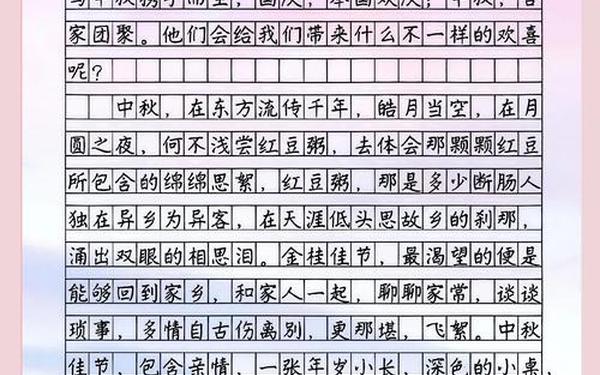 中秋携手而至，国庆，举国欢庆；中秋，合
家团聚。他们会给我们带来什么不一样的欢喜
呢？
中秋，在东方流传千年，皓月当空，在月
圆之夜，何不浅尝红豆粥，去体会那颗颗红豆
所包含的绵绵思絮，红豆粥，那是多少断肠人
独在异乡为异客，在天涯低头思故乡的刹那，
涌出双眼的相思泪。金桂佳节，最渴望的便是
能够回到家乡，和家人一起，聊聊家常，谈谈
琐事，多情自古伤离别，更那堪，飞絮。中秋
佳节，包含亲情，一张年岁小长，深色的小桌，